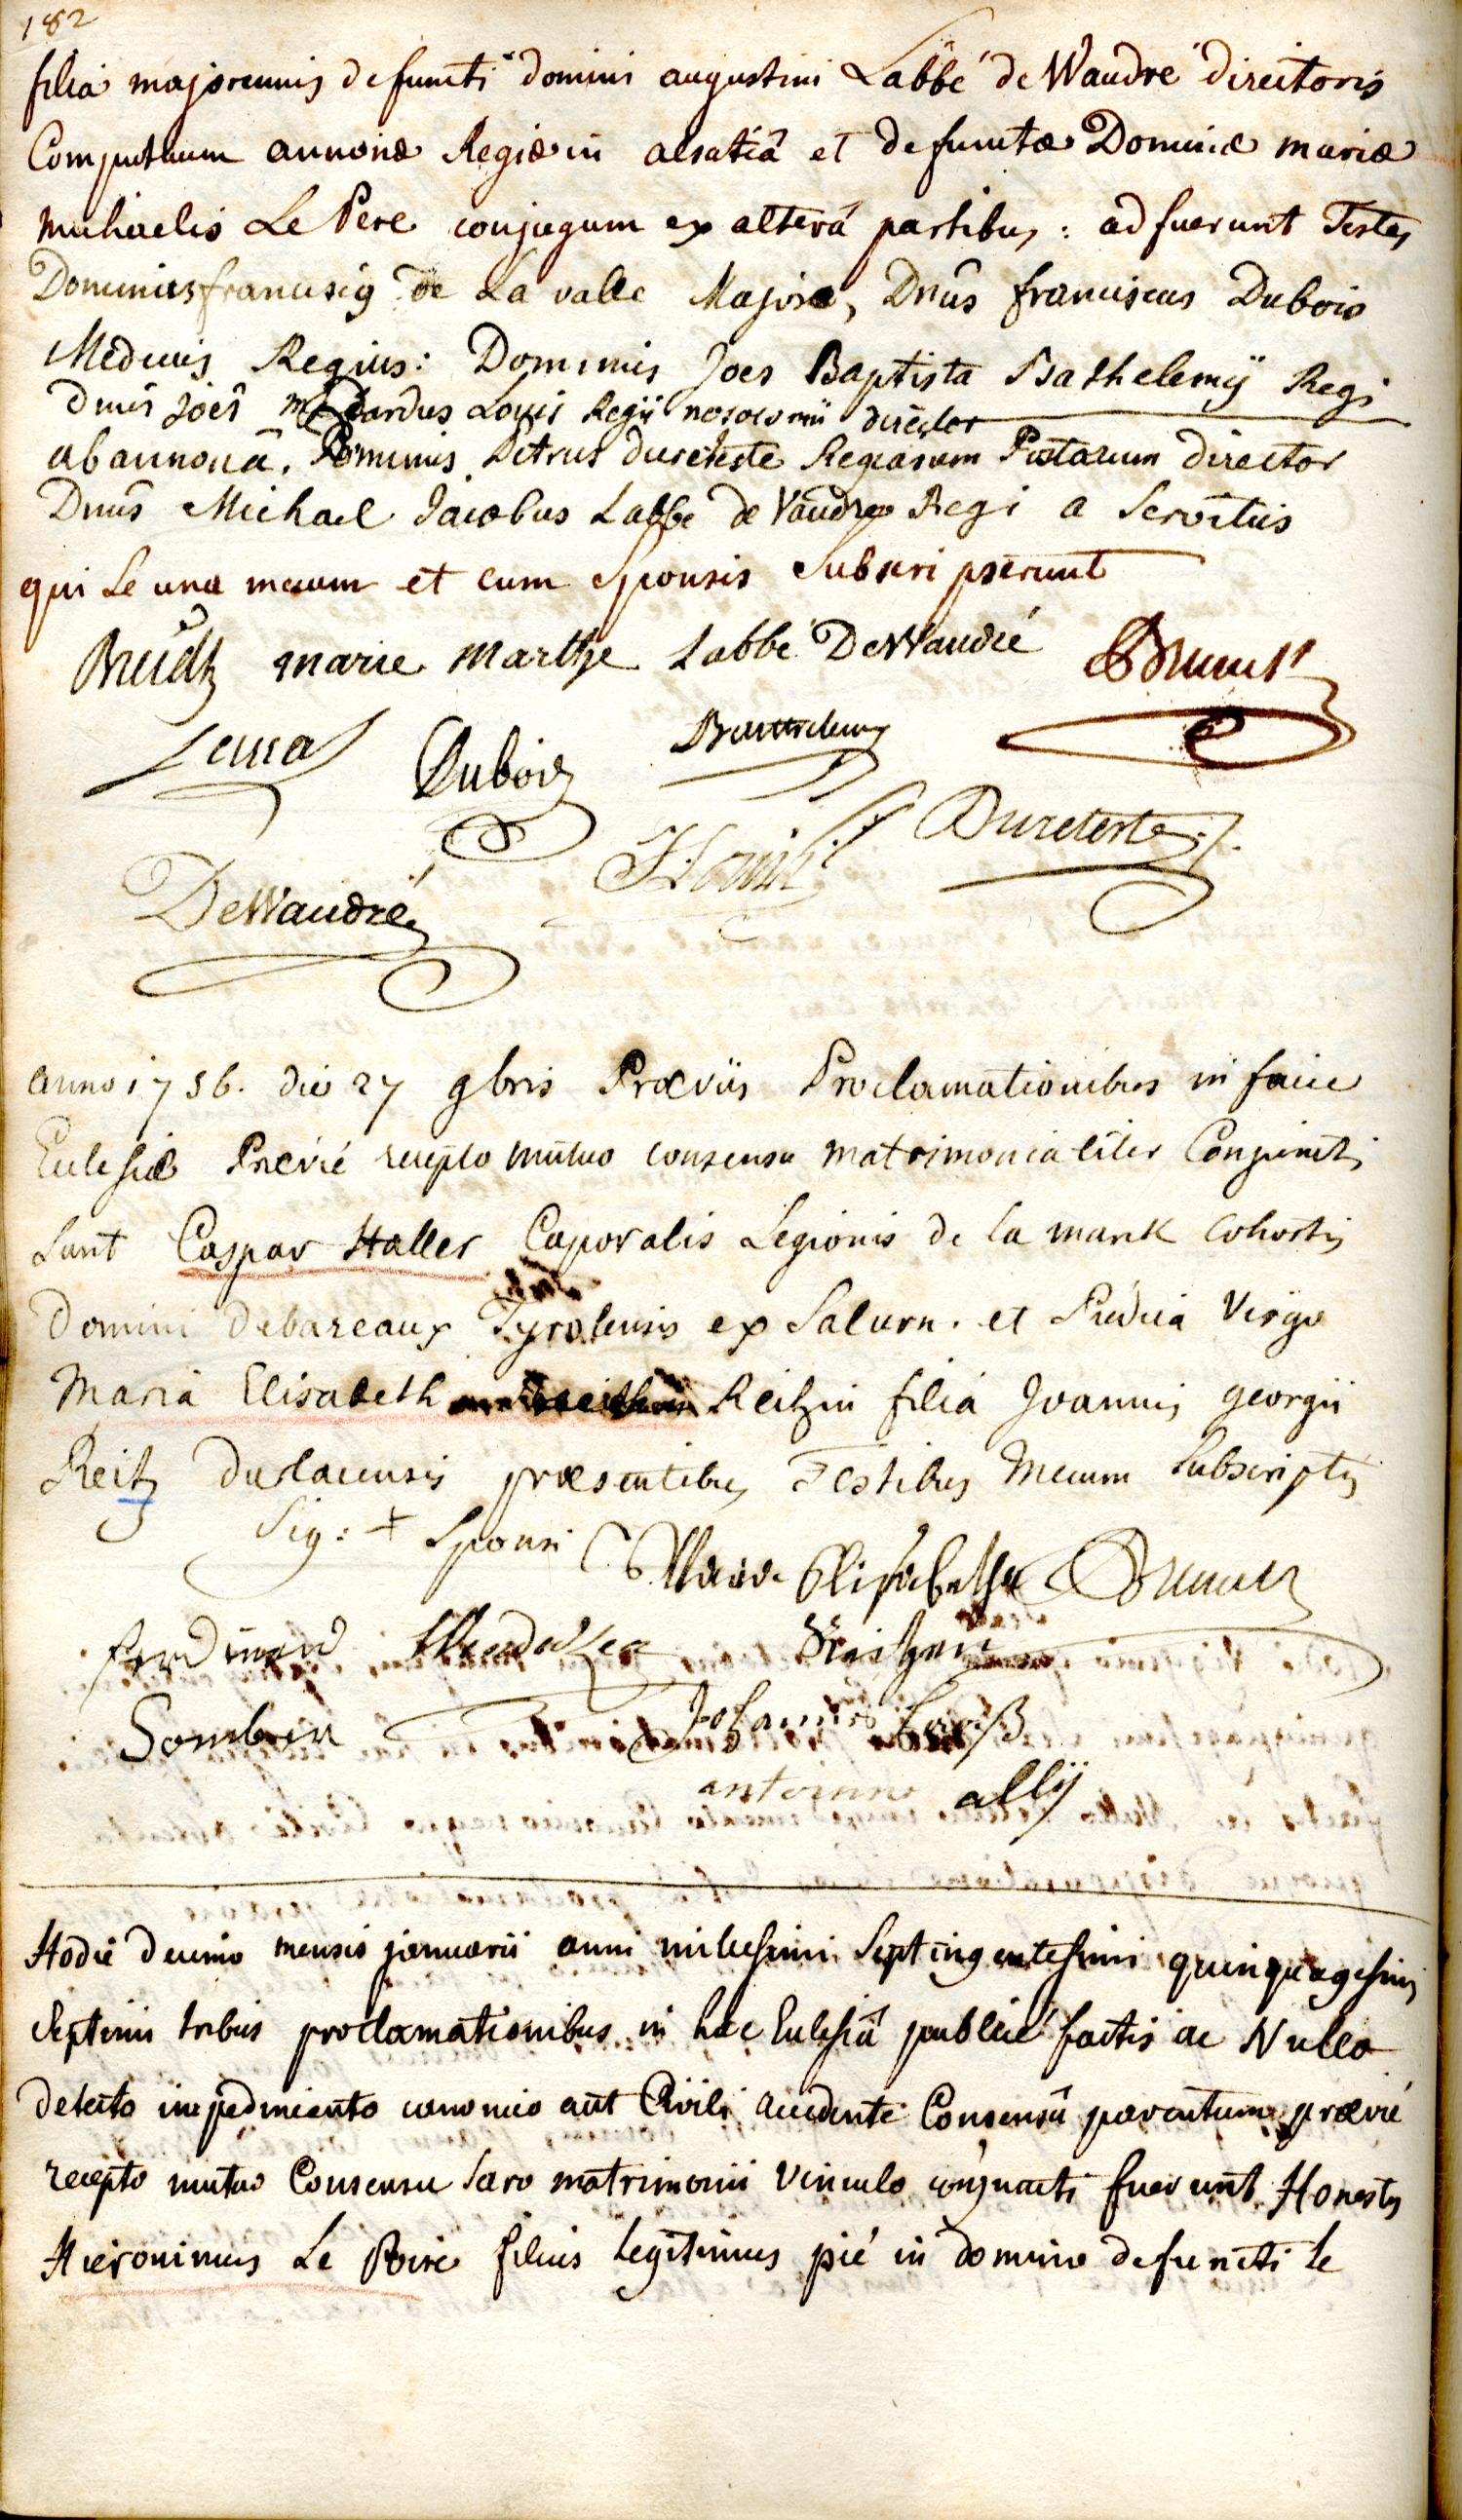 182
filia majorennis defuncti domini augustini Labbé de Waudré directoris
Computuum annonæ Regiæ in alsatiâ et defunctæ Dominæ mariæ
michaelis Le Pere conjugum ex alterâ partibus : adfuerunt Testes
Dominus franciscus de La valle Majore, Dnûs franciscus Dubois
Medicus Regius: Dominus Joes Baptista Bathelemÿ Regi
Dnûs joês medardus Louis Regii nosocomii director
ab annonâ. Dominus Petrus dureteste Regiarum Postarum director
Dnûs Michael Jacobus Labbe de Vaudre Regi a Servitiis
qui se una mecum et cum Sponsis Subscripserunt
marie marthe Labbé DeWaudré
Dubois Barthelemy
Louis Dureteste
DeWaudré
anno 1756. die 27 9bris Præviis Proclamationibus in facie
Ecclesiæ Prævié recepto mutuo consensu matrimonialiter Conjuncti
Sunt Caspar Haller Caporalis Legionis de la mark Cohortis
Domini debareaux Tyrolensis ex Salurn. et Pudica Virgo
Maria Elisabeth Reitzin filia Joannis georgii
Reitz durlacensis præsentibus Testibus Mecum Subscriptis
Sig: + Sponsi Maria Elisabetha
ferdinand
Sombrin Johannes
antoinne allÿ
Hodie decimo mensis januarii anni millesimi Septingentesimi quinquagesimi
Septimi tribus proclamationibus in hac Ecclesiâ publicé factis ac Nullo
detecto impedimento canonico aut Civili accedente Consensû parentum prævié
recepto mutuo Consensu Sacro matrimonii Vinculo conjuncti fuerunt Honestus
Hieronimus Le Poire filius legitimus pié in domino defuncti le